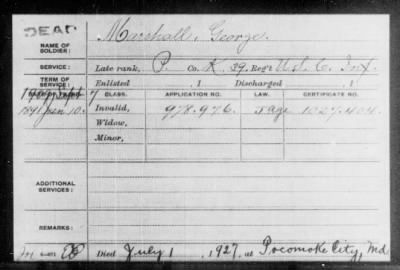 DEAD
NAME OF SOLDIER: Marshall, George.
SERVICE: Late rank, P. Co. K, 39. Reg't U.S.C. Inf.
TERM OF SERVICE: Enlisted , 1 Discharged , 1
CLASS. APPLICATION NO. LAW. CERTIFICATE NO.
1891 Jan 10. Invalid, 978.976. 1027.404
Widow,
Minor,
ADDITIONAL SERVICES:
REMARKS:
Died July 1, 1927, at Pocomoke City, Md